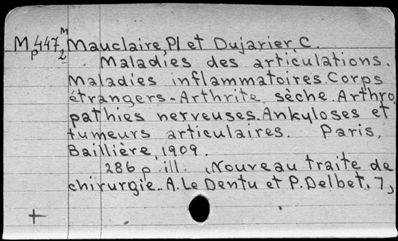 Mp447 M2 Mauclaire, Pl et Dujarier, C.
Maladies des articulations.
Maladies inflammatoires. Corps
étrangers - Arthrite sèche. Arthro
pathies nerveuses. Ankyloses et
tumeurs articulaires. Paris,
Baillière, 1909.
286 p. ill. (Nouveau traite de
chirurgie. A. Le Dentu et P. Delbet. 7)
+